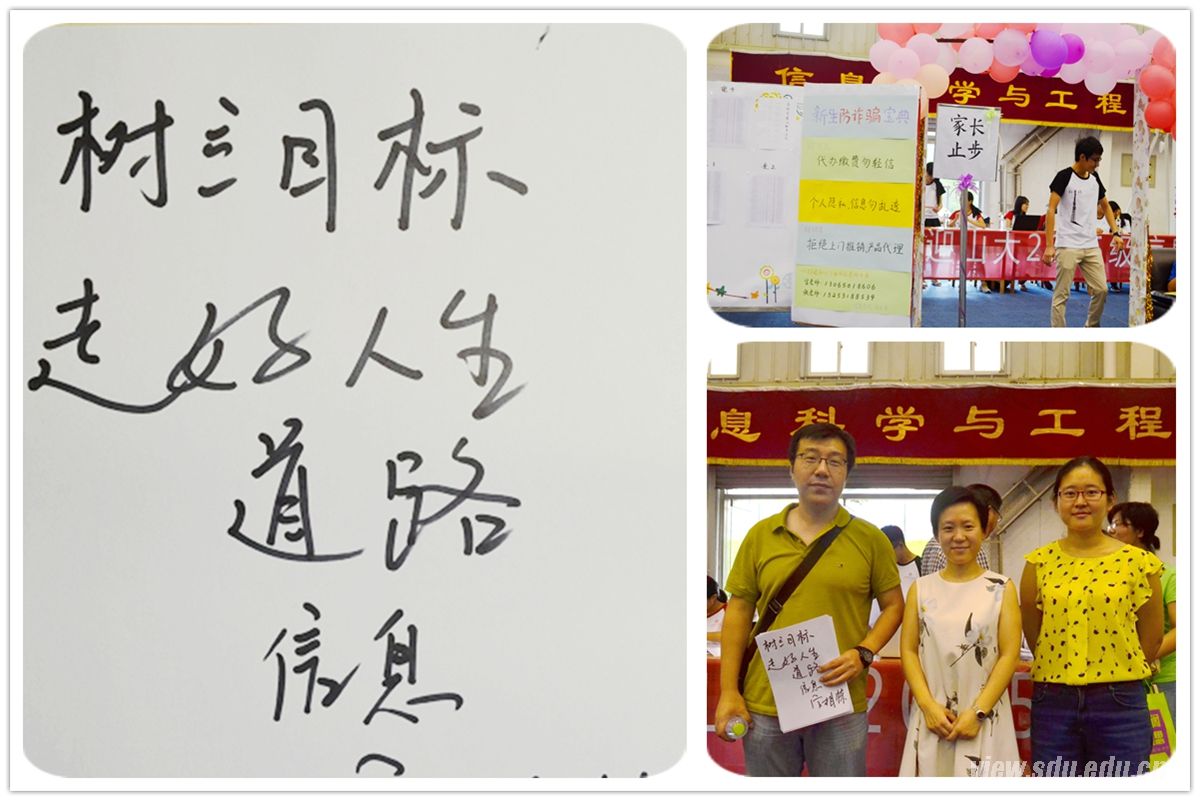 树立目标
走好人生
道路
信息
信息科学与工程
新生防诈骗宝典
代办缴费勿轻信
个人隐私、信息勿乱透
拒绝上门推销产品代理
家长
止步
迎山大2
级
息科学与工程
树立目标
走好人生
道路
信息
view.sdu.edu.cn